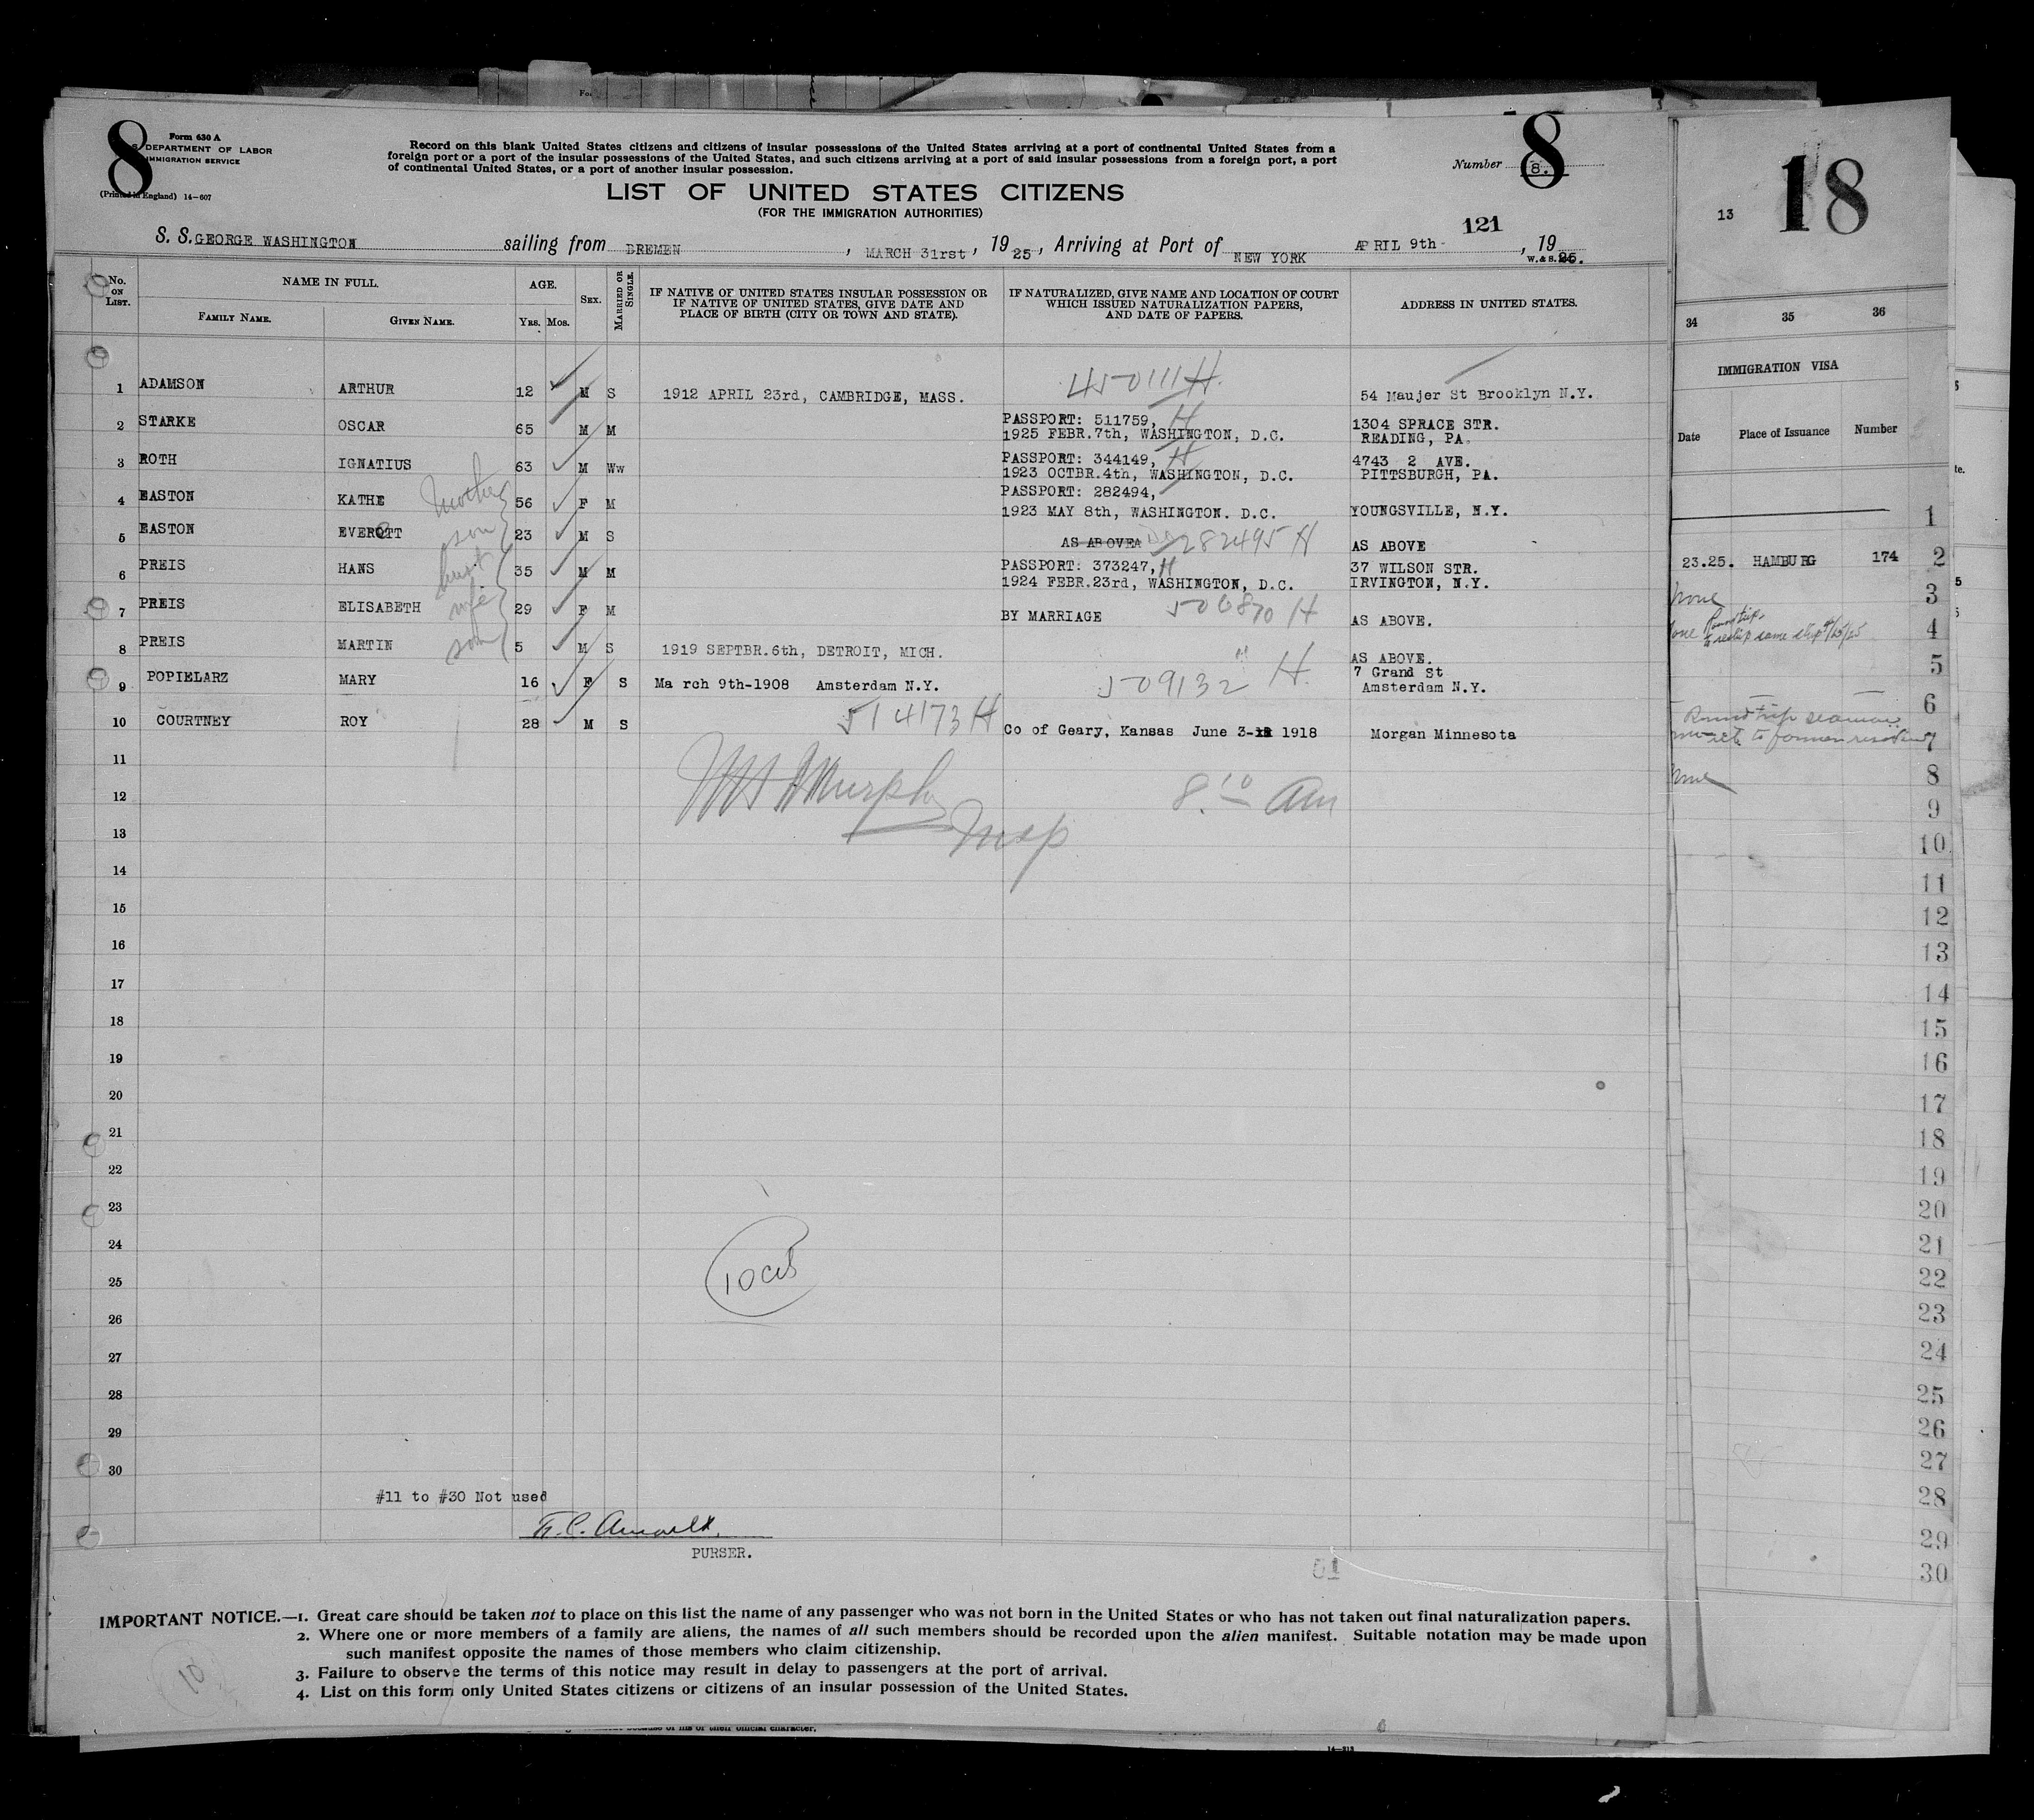 8
Form 630 A
DEPARTMENT OF LABOR
IMMIGRATION SERVICE
(Printed in England) 14—607
Record on this blank United States citizens and citizens of insular possessions of the United States arriving at a port of continental United States from a
foreign port or a port of the insular possessions of the United States, and such citizens arriving at a port of said insular possessions from a foreign port, a port
of continental United States, or a port of another insular possession.
Number 8. 8
LIST OF UNITED STATES CITIZENS
(FOR THE IMMIGRATION AUTHORITIES)
121
S. S. GEORGE WASHINGTON sailing from BREMEN, MARCH 31rst, 1925, Arriving at Port of NEW YORK APRIL 9th-, 1925.
W. & S.
No. ON LIST.
NAME IN FULL.
FAMILY NAME.
GIVEN NAME.
AGE.
YRS. MOS.
SEX.
MARRIED OR SINGLE.
IF NATIVE OF UNITED STATES INSULAR POSSESSION OR
IF NATIVE OF UNITED STATES, GIVE DATE AND
PLACE OF BIRTH (CITY OR TOWN AND STATE).
IF NATURALIZED, GIVE NAME AND LOCATION OF COURT
WHICH ISSUED NATURALIZATION PAPERS,
AND DATE OF PAPERS.
ADDRESS IN UNITED STATES.
1 ADAMSON ARTHUR 12 M S 1912 APRIL 23rd, CAMBRIDGE, MASS. 450111 H. 54 Maujer St Brooklyn N.Y.
2 STARKE OSCAR 65 M M PASSPORT: 511759, H 1304 SPRACE STR.
1925 FEBR.7th, WASHINGTON, D.C. READING, PA.
3 ROTH IGNATIUS 63 M Ww PASSPORT: 344149, H 4743 2 AVE.
1923 OCTBR.4th, WASHINGTON, D.C. PITTSBURGH, PA.
4 EASTON KATHE Mother 56 F M PASSPORT: 282494,
1923 MAY 8th, WASHINGTON. D.C. YOUNGSVILLE, N.Y.
5 EASTON EVERETT son 23 M S AS ABOVEA 282495 H AS ABOVE
6 PREIS HANS husb 35 M M PASSPORT: 373247, H 37 WILSON STR.
1924 FEBR.23rd, WASHINGTON, D.C. IRVINGTON, N.Y.
7 PREIS ELISABETH wife 29 F M BY MARRIAGE 500870 H AS ABOVE.
8 PREIS MARTIN son 5 M S 1919 SEPTBR.6th, DETROIT, MICH. AS ABOVE.
9 POPIELARZ MARY 16 F S Ma rch 9th-1908 Amsterdam N.Y. 509132 H 7 Grand St
Amsterdam N.Y.
10 COURTNEY ROY 28 M S 514173 H Co of Geary, Kansas June 3- 1918 Morgan Minnesota
11
Murphy
8.10 Am
12
13
14
15
16
17
18
19
20
21
22
23
24
25
26
27
28
29
30
#11 to #30 Not used
PURSER.
51
IMPORTANT NOTICE.—1. Great care should be taken not to place on this list the name of any passenger who was not born in the United States or who has not taken out final naturalization papers.
2. Where one or more members of a family are aliens, the names of all such members should be recorded upon the alien manifest. Suitable notation may be made upon
such manifest opposite the names of those members who claim citizenship.
3. Failure to observe the terms of this notice may result in delay to passengers at the port of arrival.
4. List on this form only United States citizens or citizens of an insular possession of the United States.
10
13 18
34 35 36
IMMIGRATION VISA
Date Place of Issuance Number
1
23.25. HAMBURG 174 2
none 3
Round trip
same ship 4
5
6
Round trip seaman
7
none 8
9
10
11
12
13
14
15
16
17
18
19
20
21
22
23
24
25
26
27
28
29
30
14—213